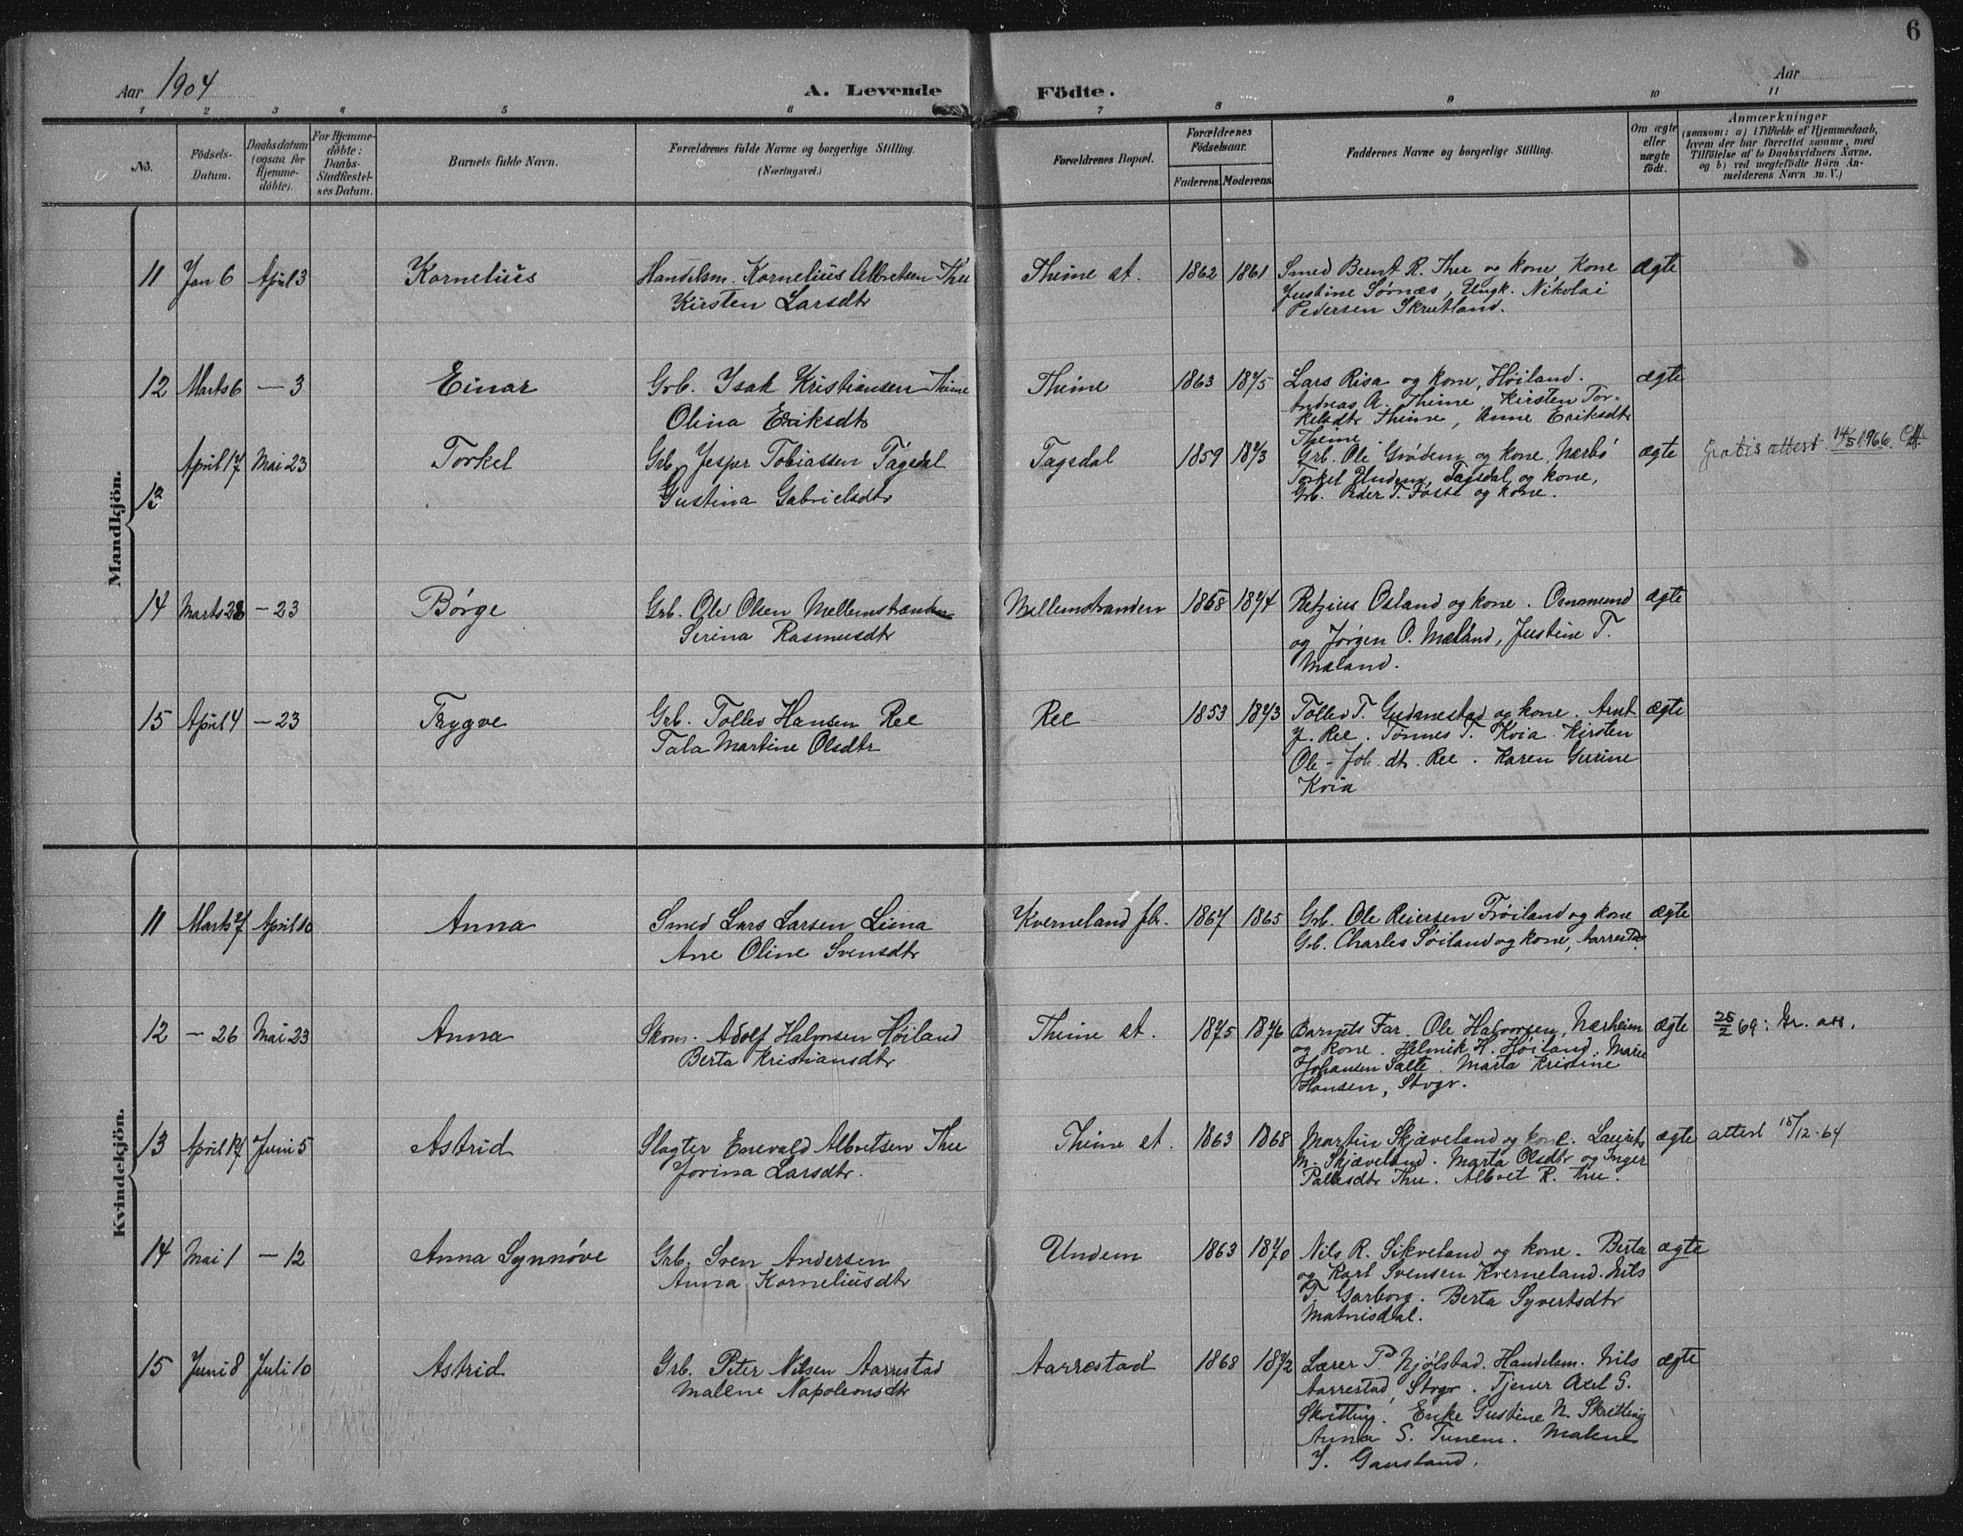 6
Aar 1904
A. Levende
Födte.
Aar
1 2 3 4 5 6 7 8 9 10 11
No.
Födsels-Datum.
Daabsdatum (ogsaa for Hjemme-döbte).
For Hjemme-döbte: Daabs-Stadfæstel-ses Datum.
Barnets fulde Navn.
Forældrenes fulde Navne og borgerlige Stilling.
(Næringsvei.)
Forældrenes Bopæl.
Forældrenes Födselsaar.
Faderens. Moderens.
Faddernes Navne og borgerlige Stilling.
Om ægte eller uægte födt.
Anmærkninger
(saasom: a) i Tilfælde af Hjemmedaab,
hvem der har forrettet samme, med
Tilföielse af to Daabsvidners Navne,
og b) ved uægtefödte Börn An-
melderens Navn m. V.)
Mandkjön.
11 Jan 6 April 3 Kornelius Handelsm. Kornelius Albretsen Thu Thime st. 1862 1861 Smed Bernt R. Thu og kone, Kone ægte
Kirsten Larsdtr Justine Sørnæs, Ungk. Nikolai
Pedersen Skrutland.
12 Marts 6 — 3 Einar Grb. Isak Kristiansen Thime Thime 1863 1875 Lars Risa og kone, Høiland. ægte
Olina Eriksdtr Andreas A. Thime Kirsten Tor-
kelsdtr Thime, Anne Eriksdtr
Thime.
13 April 17 Mai 23 Torkel Grb. Jesper Tobiassen Tagsdal Tagsdal 1859 1873 Grb. Ole Grødem og kone, Nærbø ægte Gratis attest. 14/5 1966
Gustina Gabrielsdtr Torkel Undem, Tagsdal, og kone,
Grb. Peder T. Fosse og kone.
14 Marts 28 — 23 Børge Grb. Ole Olsen Mellemstranden Mellemstranden 1868 1874 Retzius Osland og kone. Ommund ægte
Serina Rasmusdtr og Jørgen O. Mæland, Justine T.
Mæland.
15 April 4 — 23 Trygve Grb. Tollev Hansen Ree Ree 1853 1873 Tollev T. Gudmestad og kone. Arnt ægte
Tala Martine Olsdtr J. Ree. Tønnes T. Kvia. Kirsten
Ole - Joh. dtr. Ree. Karen Gurine
Kvia
Kvindekjön.
11 Marts 7 April 10 Anna Smed Lars Larsen Lima Kverneland fbr. 1867 1865 Grb. Ole Reiersen Frøiland og kone ægte
Ane Oline Svensdtr Grb. Charles Søiland og kone, Aarrestad.
12 — 26 Mai 23 Anna Skom. Adolf Halvorsen Høiland Thime st. 1875 1876 Barnets Far. Ole Halvorsen, Nærheim ægte 25/2 69: Gr. att.
Berta Kristiansdtr og kone. Helmik H. Høiland. Marie
Johansen Salte. Marta Kristine
Hansen, Stvgr.
13 April 17 Juni 5 Astrid Slagter Enevald Albretsen Thu Thime st. 1863 1868 Martin Skjæveland og kone. Laurits ægte attest 15/12-64
Jorina Larsdtr. M. Skjæveland. Marta Olsdtr og Inger
Pallesdtr Thu. Albret R. Thu.
14 Mai 1 — 12 Anna Synnøve Grb. Sven Andersen Undem 1863 1870 Nils R. Sikveland og kone. Berta ægte
Anna Korneliusdtr og Karl Svensen Kverneland. Nils
T. Garborg. Berta Syvertsdtr
Matnisdal.
15 Juni 8 Juli 10 Astrid Grb. Peter Nilsen Aarrestad Aarrestad 1868 1872 Lærer P. Njølstad. Handelsm. Nils ægte
Malene Napoleonsdtr Aarrestad, Stvgr. Tjener Axel G.
Skretting. Enke Gustine N. Skretting
Anna S. Tunem. Malene
J. Gausland.